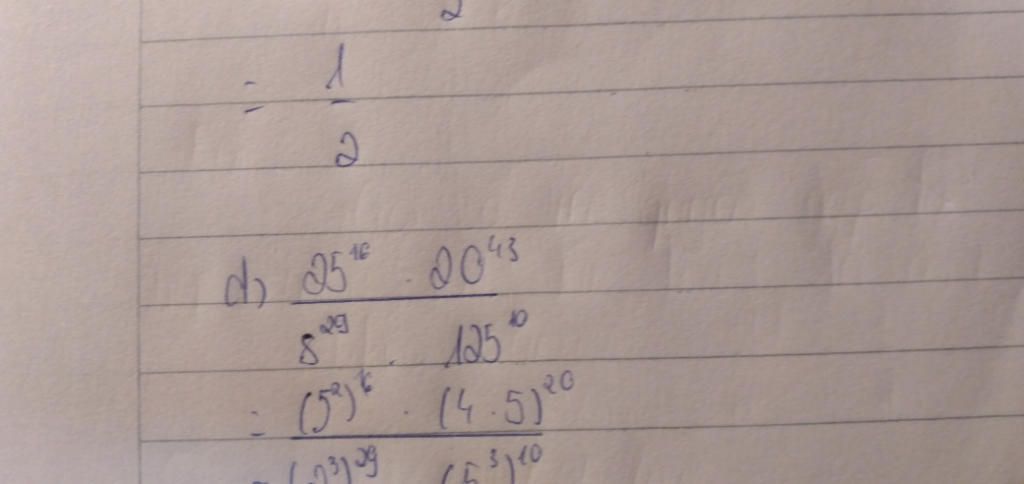 2
= 1
2
d) 25^16 . 20^43
8^29 . 125^10
= (5^2)^16 . (4 . 5)^20
= (2^3)^29 (5^3)^10